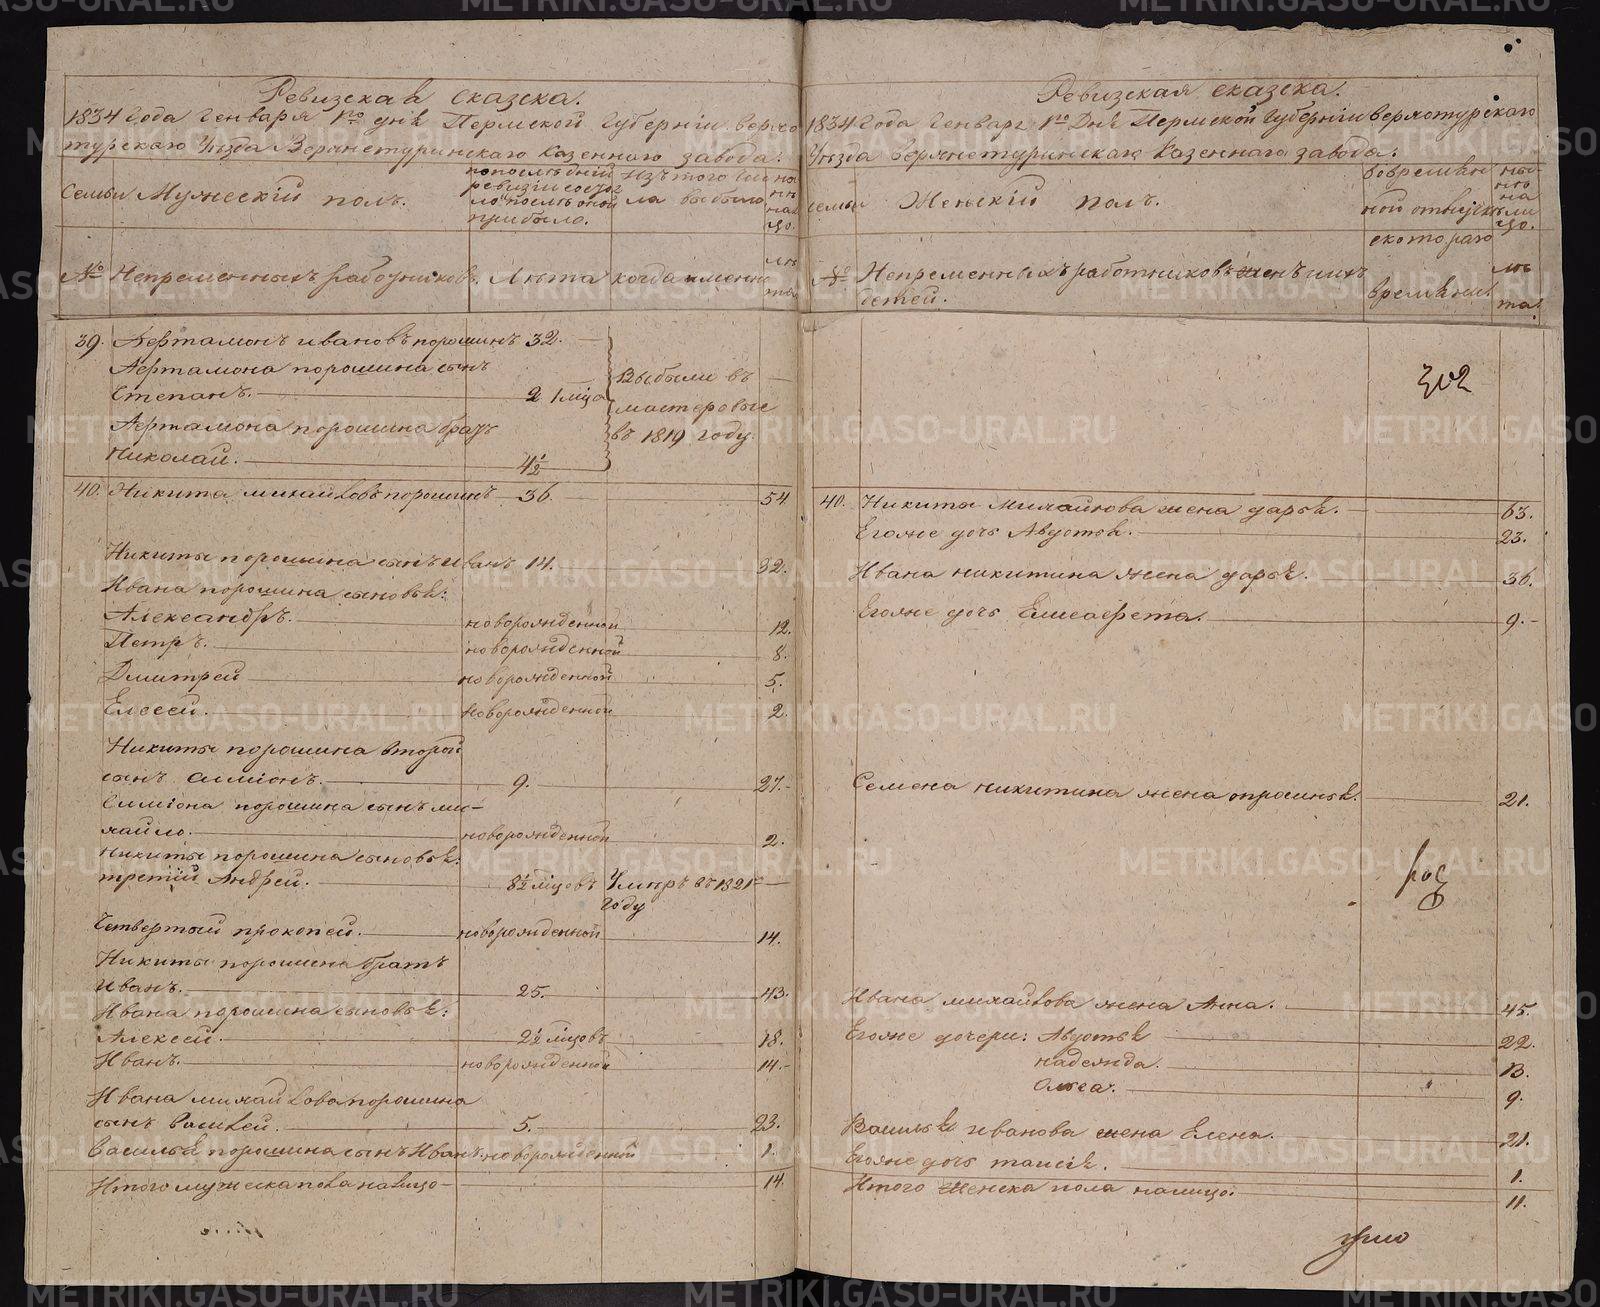 Ревизская сказска.
1834 Года Генваря 1го дня Пермской Губернiи верхо
турскаго Уѣзда Верхнетуринскаго Казеннаго завода.
Семьи Мужескiй полъ.
попослѣдней
ревизiи состоя
ло послѣ оной
прибыло.
Изъ того Чис
ла выбыло
Нынѣ
на ли
цо.
№ Непременныхъ работниковъ. Лѣта когда именно лѣ
та
39. Аертамонъ ивановъ порошинъ 32.
Аертамона порошина сынъ
Степанъ. 2 1 мца
Аертамона порошина братъ
Николай. 4½
Выбыли въ
мастеровые
въ 1819 году.
40. Никита михайловъ порошинъ 36. 54
Никиты порошина сынъ иванъ 14. 32.
Ивана порошина сыновья:
Александръ. новорожденной 12.
Петръ. новорожденной 8.
Дмитрей новорожденной 5.
Елесей. новорожденной 2.
Никиты порошина второй
сынъ симiонъ. 9. 27.
Симiона порошина сынъ ми-
хайло. новорожденной 2.
Никиты порошина сыновья:
третiй Андрей. 8½ мцовъ Умеръ въ 1821
году
Четвертый прокопей. новорожденной 14.
Никиты порошина братъ
Иванъ. 25. 43.
Ивана порошина сыновья:
Алексей. 2½ мцовъ 18.
Иванъ. новорожденной 14.
Ивана михайлова порошина
сынъ Василей. 5. 23.
Василья порошина сынъ Иванъ. новорожденной 1.
Итого мужеска пола налицо 14.
Ревизская сказска.
1834 Года Генваря 1го Дня Пермской Губернiи верхотурскаго
Уѣзда верхнетуринскаго Казеннаго завода.
семьи Женскiй полъ.
во времян
ной отлучкѣ
скотораго
ны-
нѣ
на
ли
цо.
№ Непременныхъ работниковъ жен и ихъ
детей.
времяни. лѣ
та.
40. Никиты Михайлова жена дарья. 63.
Егоже дочь Авдотья. 23.
Ивана никитина жена дарья. 36.
Егоже дочь Елисаефета. 9.
Семена никитина жена опросинья. 21.
Ивана михайлова жена Анна. 45.
Егоже дочери: Авдотья 22.
надежда. 13.
Олга. 9.
Василья иванова жена Елена. 21.
Егоже дочь таисья. 1.
Итого Женска пола налицо. 11.
METRIKI.GASO-URAL.RU